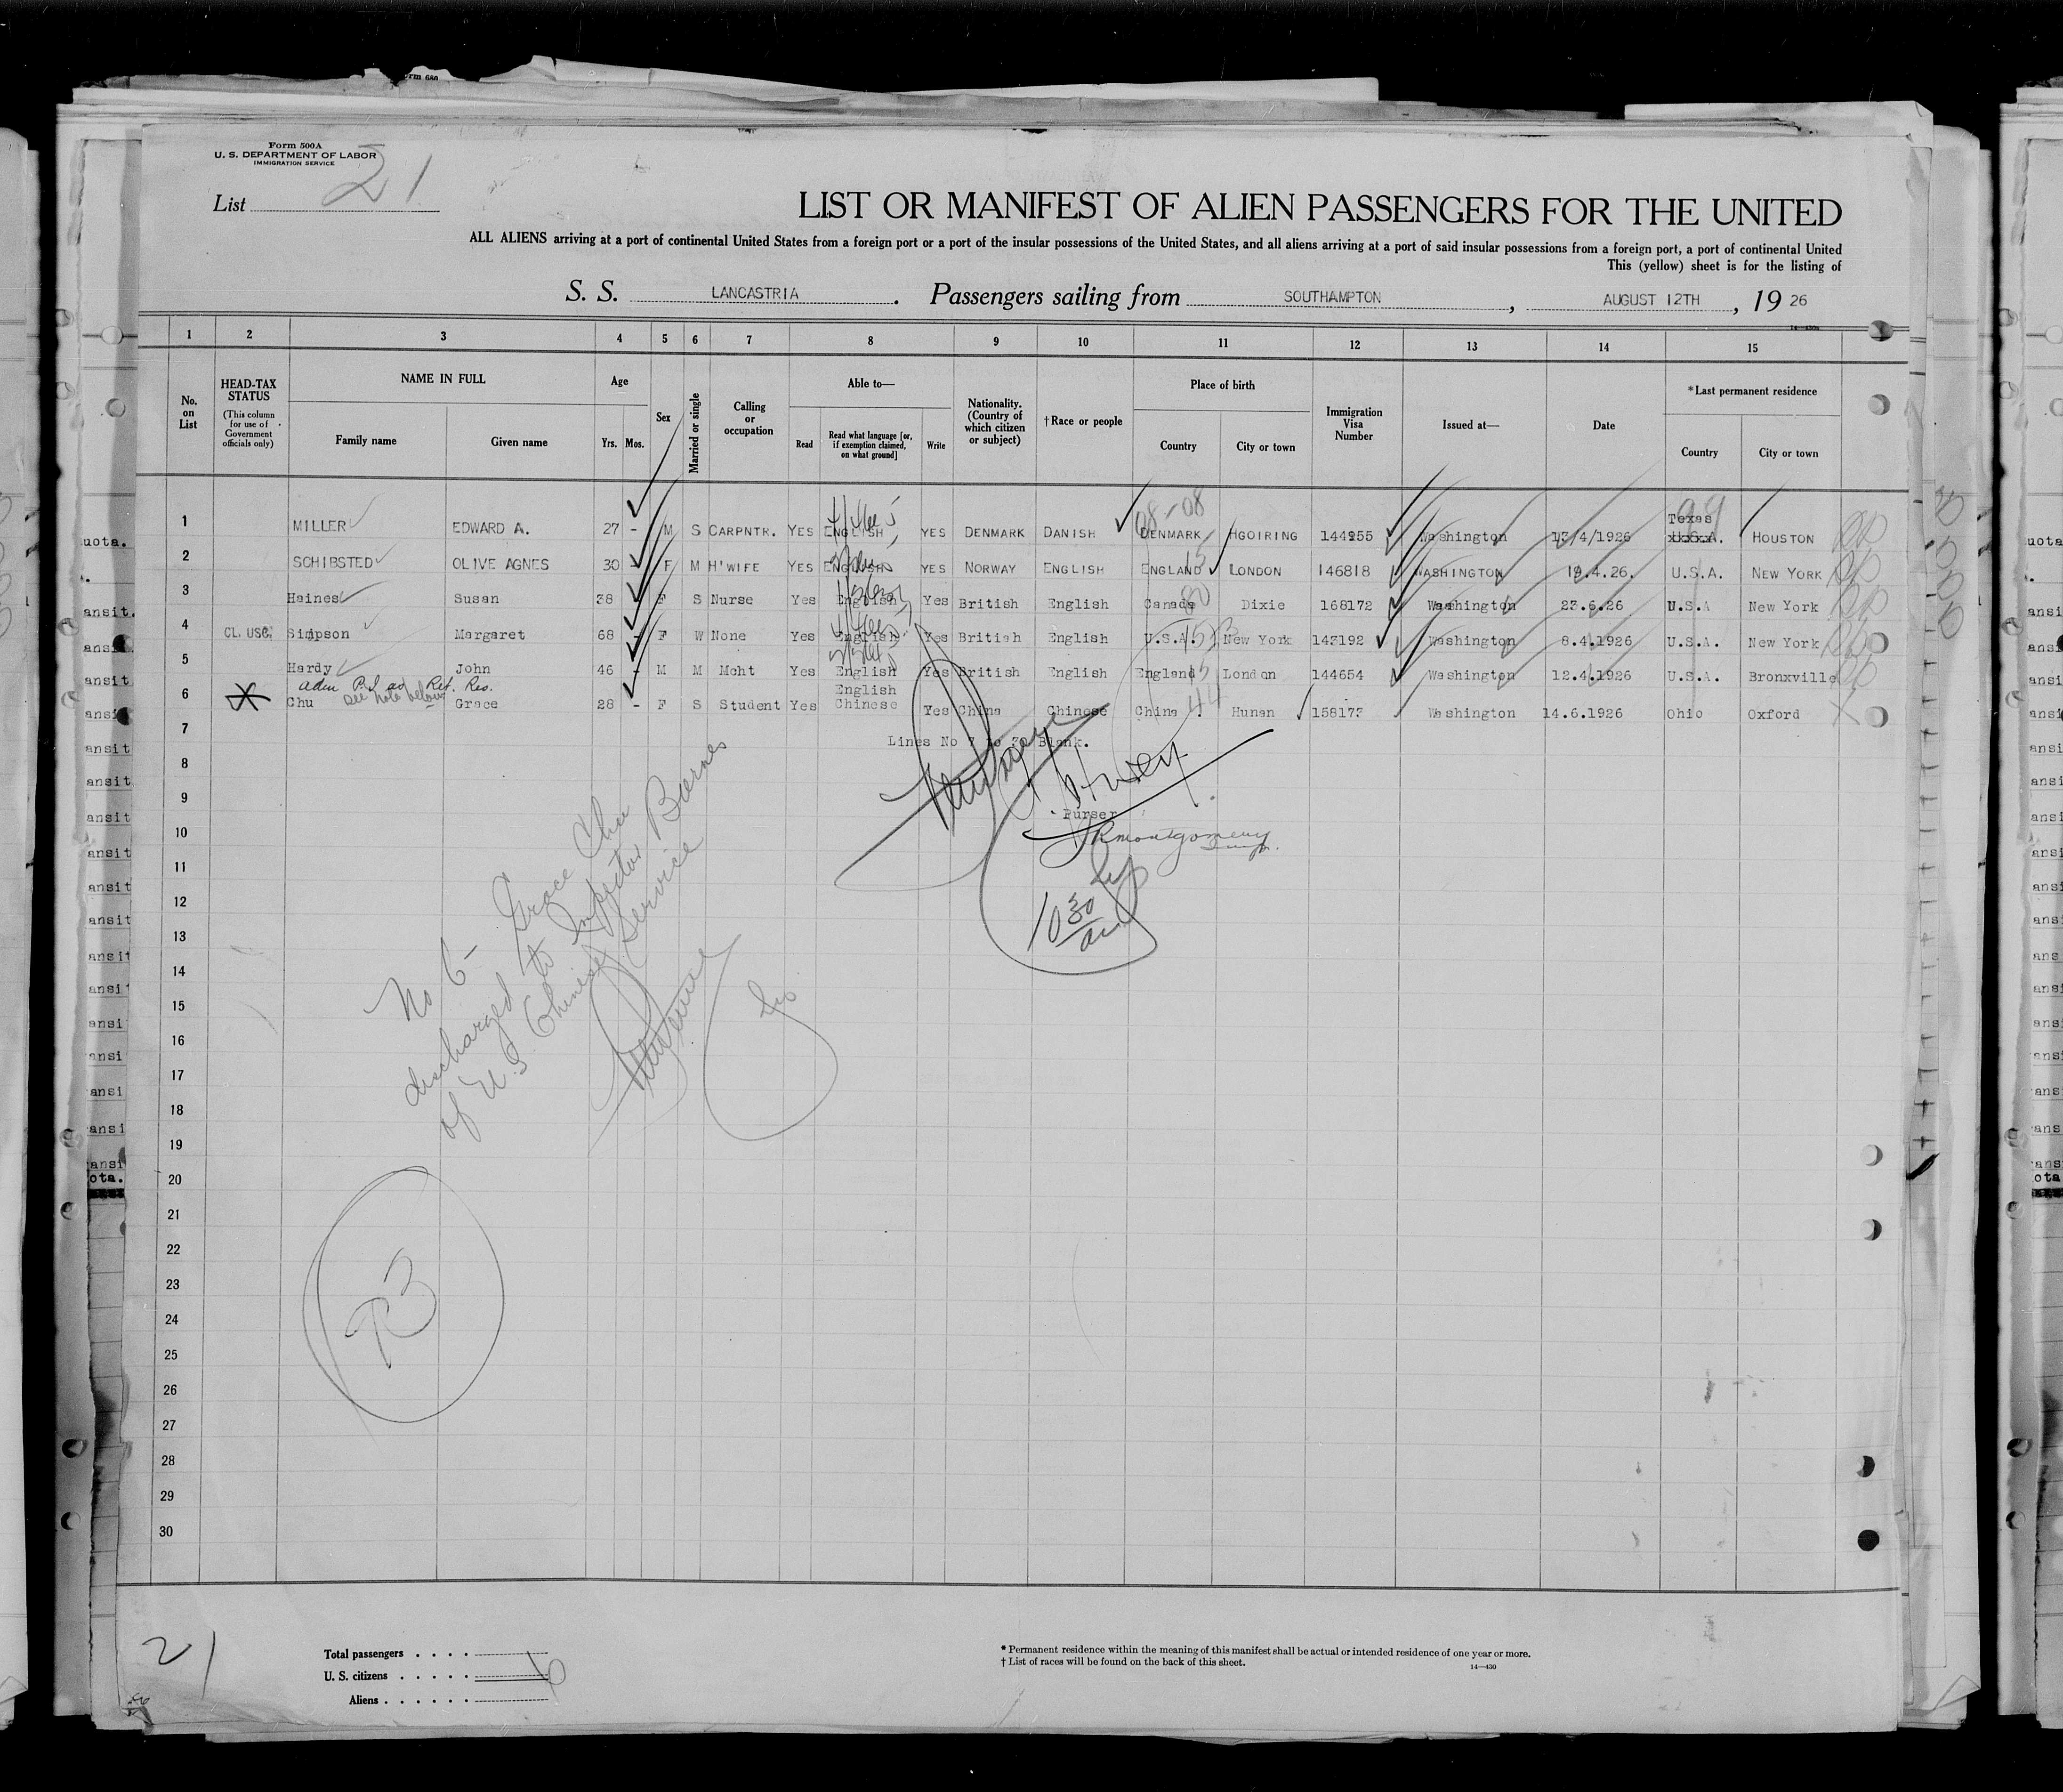 Form 680
Form 500A
U. S. DEPARTMENT OF LABOR
IMMIGRATION SERVICE
List 21
LIST OR MANIFEST OF ALIEN PASSENGERS FOR THE UNITED
ALL ALIENS arriving at a port of continental United States from a foreign port or a port of the insular possessions of the United States, and all aliens arriving at a port of said insular possessions from a foreign port, a port of continental United
This (yellow) sheet is for the listing of
S. S. LANCASTRIA. Passengers sailing from SOUTHAMPTON, AUGUST 12TH, 19 26
1 2 3 4 5 6 7 8 9 10 11 12 13 14 15
No. on List
HEAD-TAX STATUS
(This column for use of Government officials only)
NAME IN FULL
Family name
Given name
Age
Yrs. Mos.
Sex
Married or single
Calling or occupation
Able to—
Read
Read what language [or, if exemption claimed, on what ground]
Write
Nationality. (Country of which citizen or subject)
†Race or people
Place of birth
Country
City or town
Immigration Visa Number
Issued at—
Date
*Last permanent residence
Country
City or town
1 MILLER EDWARD A. 27 - M S CARPNTR. YES ENGLISH YES DENMARK DANISH DENMARK HGOIRING 144955 Washington 13/4/1926 Texas U.S.A. HOUSTON
2 SCHIBSTED OLIVE AGNES 30 - F M H'WIFE YES ENGLISH YES NORWAY ENGLISH ENGLAND LONDON 146818 WASHINGTON 19.4.26. U.S.A. NEW YORK
3 Haines Susan 38 - F S Nurse Yes English Yes British English Canada Dixie 168172 Washington 23.6.26 U.S.A New York
4 CL. USC. Simpson Margaret 68 - F W None Yes English Yes British English U.S.A. New York 143192 Washington 8.4.1926 U.S.A. New York
5 Hardy John 46 - M M Mcht Yes English Yes British English England London 144654 Washington 12.4.1926 U.S.A. Bronxville
adm P.I. as Ret. Res.
see note below
6 Chu Grace 28 - F S Student Yes English Chinese Yes China Chinese China Hunan 158173 Washington 14.6.1926 Ohio Oxford
7 Lines No 7 to 30 Blank.
8
9
Purser
10
Montgomery
11
12
10 30 am
13
14
15
16
17
18
19
20
21
22
23
24
25
26
27
28
29
30
No 6 - Grace Chu
discharged to Inspector Barnes
of U.S. Chinese Service
21
Total passengers
U. S. citizens
Aliens
6
* Permanent residence within the meaning of this manifest shall be actual or intended residence of one year or more.
† List of races will be found on the back of this sheet.
14—430